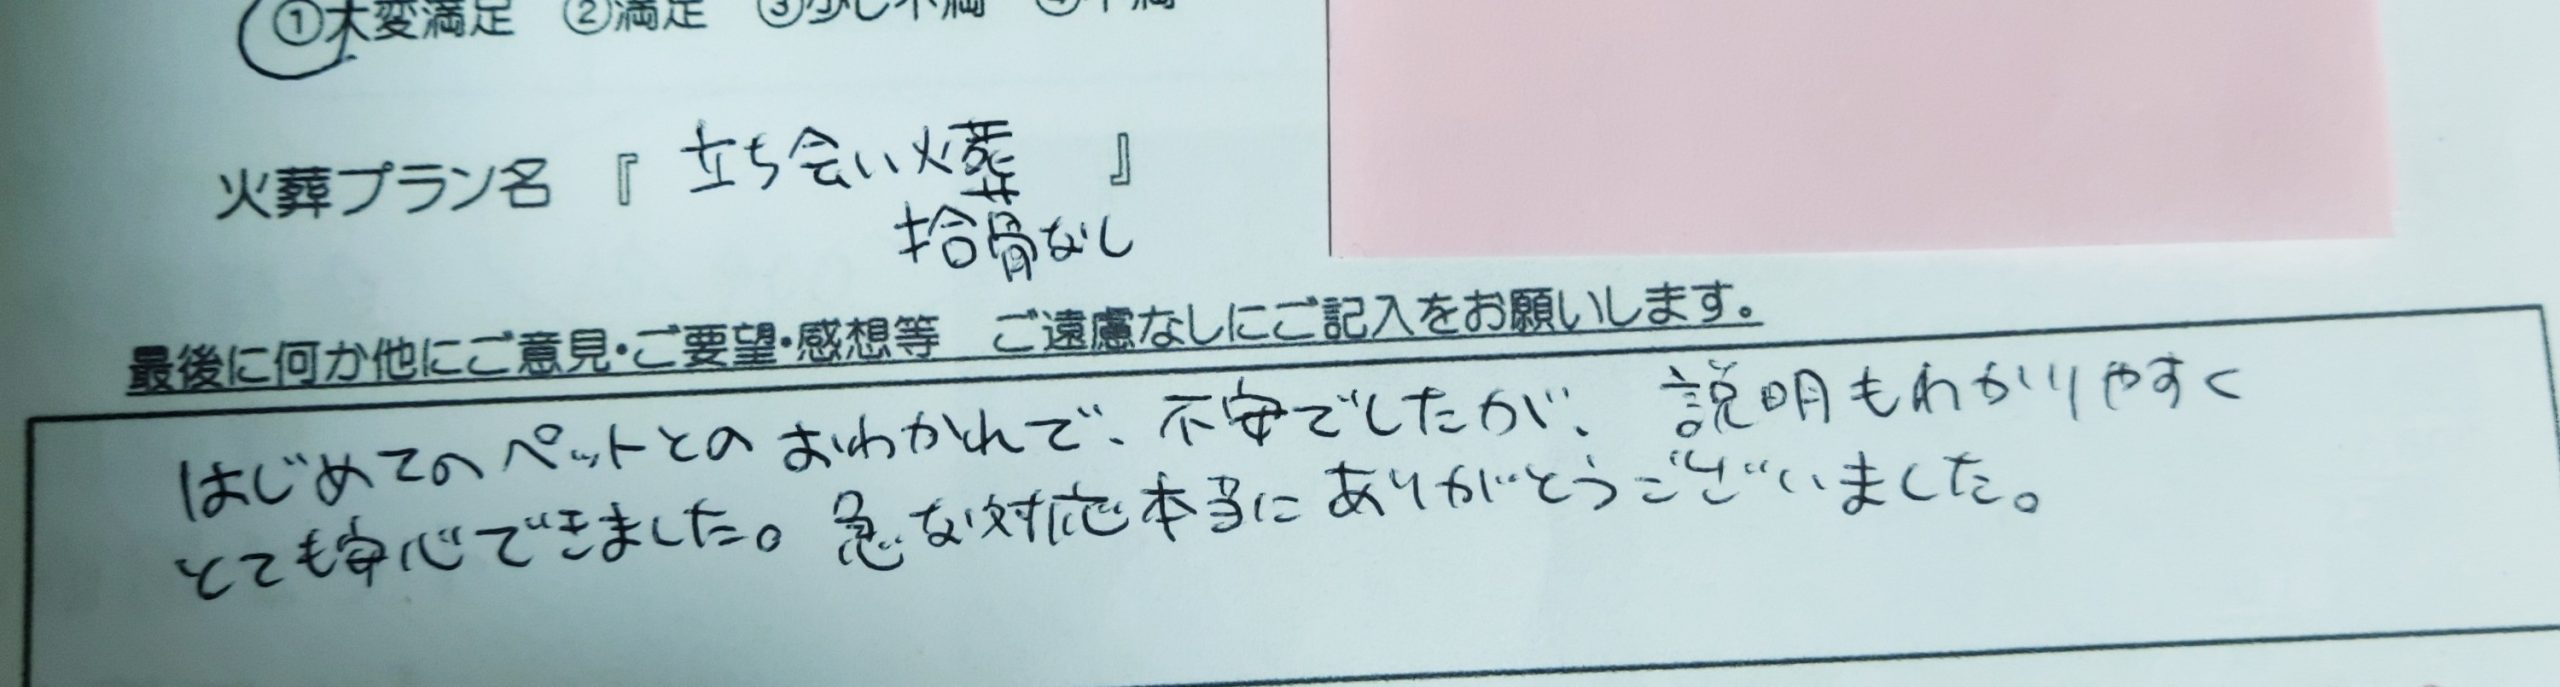 ①大変満足 ②満足 ③少し不満 ④不満
火葬プラン名 『 立ち会い火葬 』
拾骨なし
最後に何か他にご意見・ご要望・感想等 ご遠慮なしにご記入をお願いします。
はじめてのペットとのおわかれで、不安でしたが、説明もわかりやすく
とても安心できました。急な対応本当にありがとうございました。